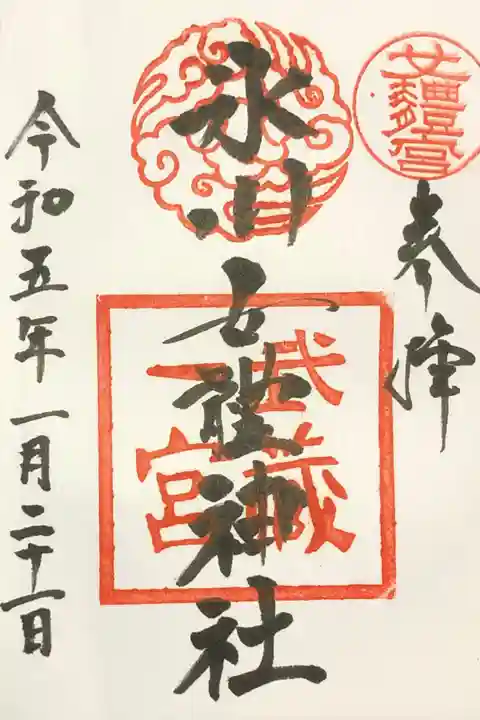 女體宮
奉拝
氷川女體神社
武藏
一宮
令和五年一月二十一日